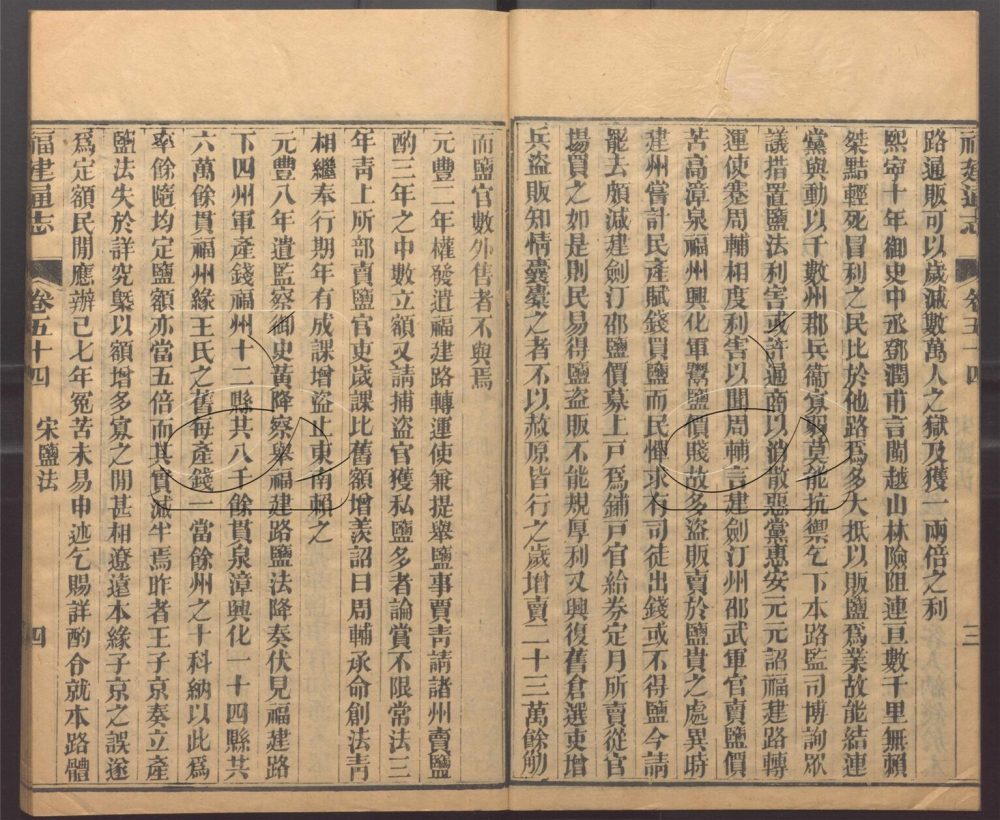 福建通志 卷五十四 三
路通販可以歲減數萬人之獄及獲一兩倍之利
熙寧十年御史中丞鄧潤甫言閩越山林險阻連亘數千里無賴
桀黠輕死冒利之民比於他路爲多大抵以販鹽爲業故能結連
黨與動以千數州郡兵衞寡弱莫能抗禦乞下本路監司博詢眾
議措置鹽法利害或許通商以消散惡黨惠安元元詔福建路轉
運使蹇周輔相度利害以聞周輔言建劍汀州邵武軍官賣鹽價
苦高漳泉福州興化軍鬻鹽價賤故多盜販賣於鹽貴之處異時
建州嘗計民產賦錢買鹽而民憚求有司徒出錢或不得鹽今請
罷去頗減建劍汀邵鹽價募上戸爲鋪戸官給券定月所賣從官
塲買之如是則民易得鹽盜販不能規厚利又興復舊倉選吏增
兵盜販知情囊橐之者不以赦原皆行之歲增賣二十三萬餘觔
而鹽官數外售者不與焉
元豐二年權發遣福建路轉運使兼提舉鹽事賈靑請諸州賣鹽
酌三年之中數立額又請捕盜官獲私鹽多者論賞不限常法三
年靑上所部賣鹽官吏歲課比舊額增羨詔曰周輔承命創法靑
相繼奉行期年有成課增盜止東南賴之
元豐八年遣監察御史黃降察舉福建路鹽法降奏伏見福建路
下四州軍產錢福州十二縣共八千餘貫泉漳興化一十四縣共
六萬餘貫福州緣王氏之舊每產錢一當餘州之十科納以此爲
率餘隨均定鹽額亦當五倍而其實減半焉昨者王子京奏立產
鹽法失於詳究槩以額增多寡之閒甚相遼遠本緣子京之誤遂
爲定額民閒應辦已七年冤苦未易申述乞賜詳酌令就本路體
福建通志 卷五十四 宋鹽法 四